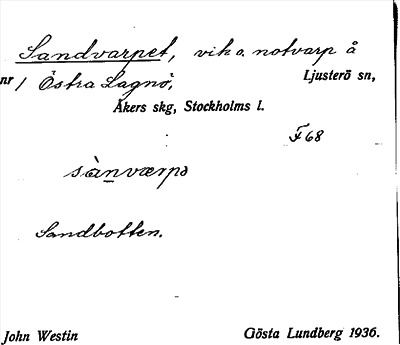 Sandvarpet, vik o. notvarp å
nr 1 Östra Lagnö, Ljusterö sn,
Åkers skg, Stockholms l.
F 68
sànværpə
Sandbotten.
John Westin Gösta Lundberg 1936.